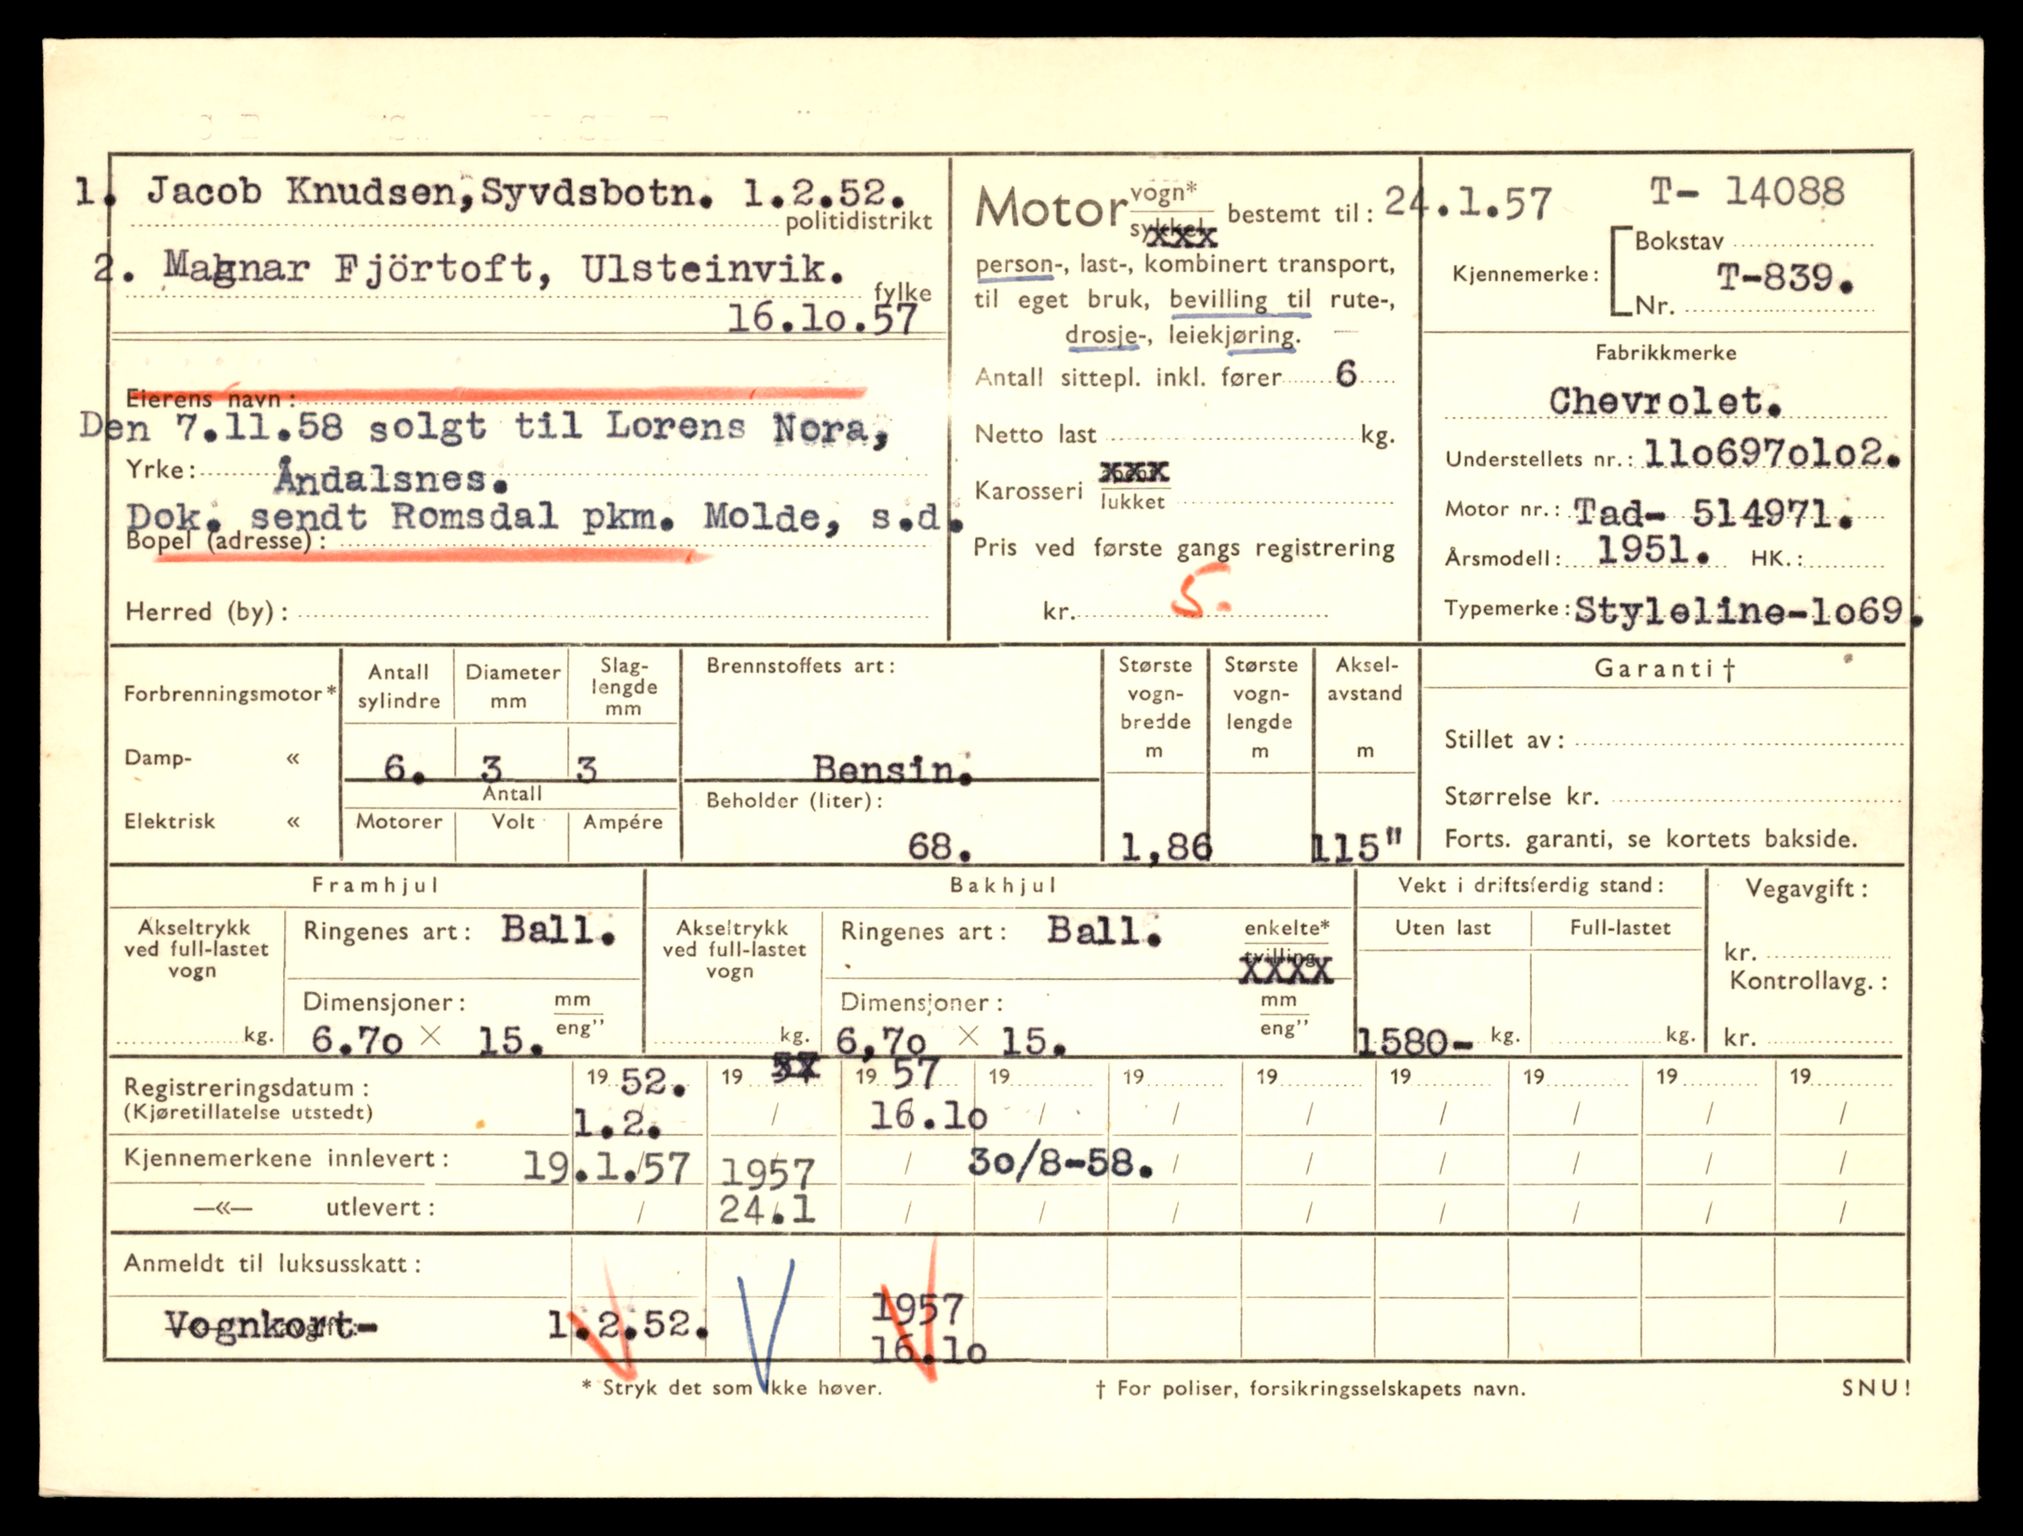 1. Jacob Knudsen, Syvdsbotn. 1.2.52.
politidistrikt
2. Magnar Fjörtoft, Ulsteinvik.
fylke
16.10.57
Eierens navn:
Den 7.11.58 solgt til Lorens Nora,
Yrke: Åndalsnes.
Dok. sendt Romsdal pkm. Molde, s.d.
Bopel (adresse):
Herred (by):
Motor vogn* sykkel xxx bestemt til: 24.1.57
person-, last-, kombinert transport,
til eget bruk, bevilling til rute-,
drosje-, leiekjøring.
Antall sittepl. inkl. fører 6
Netto last kg.
Karosseri xxx lukket
Pris ved første gangs registrering
kr. 5.
T- 14088
Kjennemerke: Bokstav
T-839.
Nr.
Fabrikkmerke
Chevrolet.
Understellets nr.: 11o697o1o2.
Motor nr.: Tad- 514971.
Årsmodell: 1951. HK.:
Typemerke: Styleline-1o69.
Forbrenningsmotor*
Damp- «
Elektrisk «
Antall sylindre
Diameter mm
Slag-lengde mm
6. 3 3
Antall
Motorer Volt Ampére
Brennstoffets art:
Bensin.
Beholder (liter):
68.
Største vogn-bredde m
1,86
Største vogn-lengde m
Aksel-avstand m
115"
Garanti †
Stillet av:
Størrelse kr.
Forts. garanti, se kortets bakside.
Framhjul
Akseltrykk ved full-lastet vogn
kg.
Ringenes art: Ball.
Dimensjoner: mm eng”
6.7o × 15.
Bakhjul
Akseltrykk ved full-lastet vogn
kg.
Ringenes art: Ball. enkelte* tvilling XXXX
Dimensjoner: mm eng”
6,7o × 15.
Vekt i driftsferdig stand:
Uten last Full-lastet
1580- kg. kg.
Vegavgift:
kr.
Kontrollavg.:
kr.
Registreringsdatum: 19 52. 19 19 57 19 19 19 19 19 19 19
(Kjøretillatelse utstedt) 1.2. / 16.1o / / / / / / /
Kjennemerkene innlevert: 19.1.57 1957 / 3o/8-58. / / / / / /
—«— utlevert: / 24.1 / / / / / / / /
Anmeldt til luksusskatt:
Vognkort- 1.2.52. 1957
16.1o
* Stryk det som ikke høver. † For poliser, forsikringsselskapets navn. SNU!